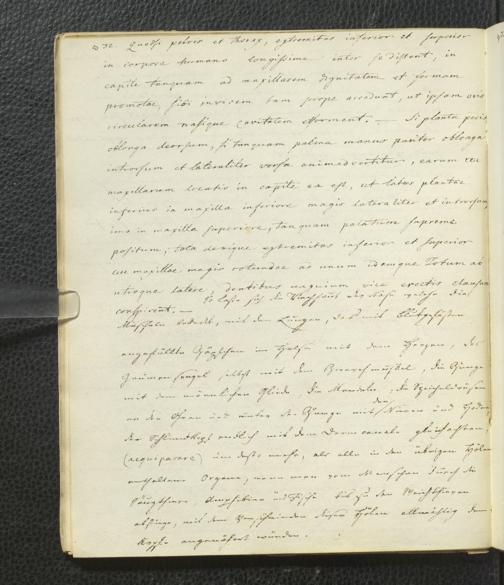 32. Quodsi pelvis et thorax, extremitas inferior et superior
in corpore humano longissime inter se distant, in
capite tanquam ad maxillarem dignitatem et formam
promotae, sibi invicem tam prope accedunt, ut ipsam oris
circularem nasique cavitatem forment. — Si planta pedis
oblonga deorsum, si tanquam palma manus pariter oblonga
introrsum et lateraliter versa animadvertitur, earum ceu
maxillarum locatio in capite ea est, ut latus plantae
inferius in maxilla inferiore magis lateraliter et introrsum,
imo in maxilla superiore, tanquam palatium supreme
positum, tota denique extremitas inferior et superior
ceu maxillae magis rotundae ad unum idemque Totum ab
utroque latere, dentibus unguium vice erectis clausum
conspirent. —
So läßt sich die der Nase die
Muscheln bedeckt, mit den Lungen, das mit Blutgefäßen
angefüllte Zäpfchen im Halse mit dem Herzen, das
Gaumensegel selbst mit dem Zwerchmuskel, die Zunge
mit dem männlichen Gliede, die Mandeln, die Speicheldrüsen
an den Ohren und unter der Zunge mit den Nieren und Hoden,
der Schlundkopf endlich mit dem Darmcanale gleichachten,
(aequiparare) um desto mehr, als alle in den übrigen Höhlen
enthaltene Organe, wenn man vom Menschen durch die
Säugthiere, Amphibien und Fische bis zu den Weichthieren
absteigt, mit dem Verschwinden dieser Höhlen allmählig dem
Kopfe angenähert werden.